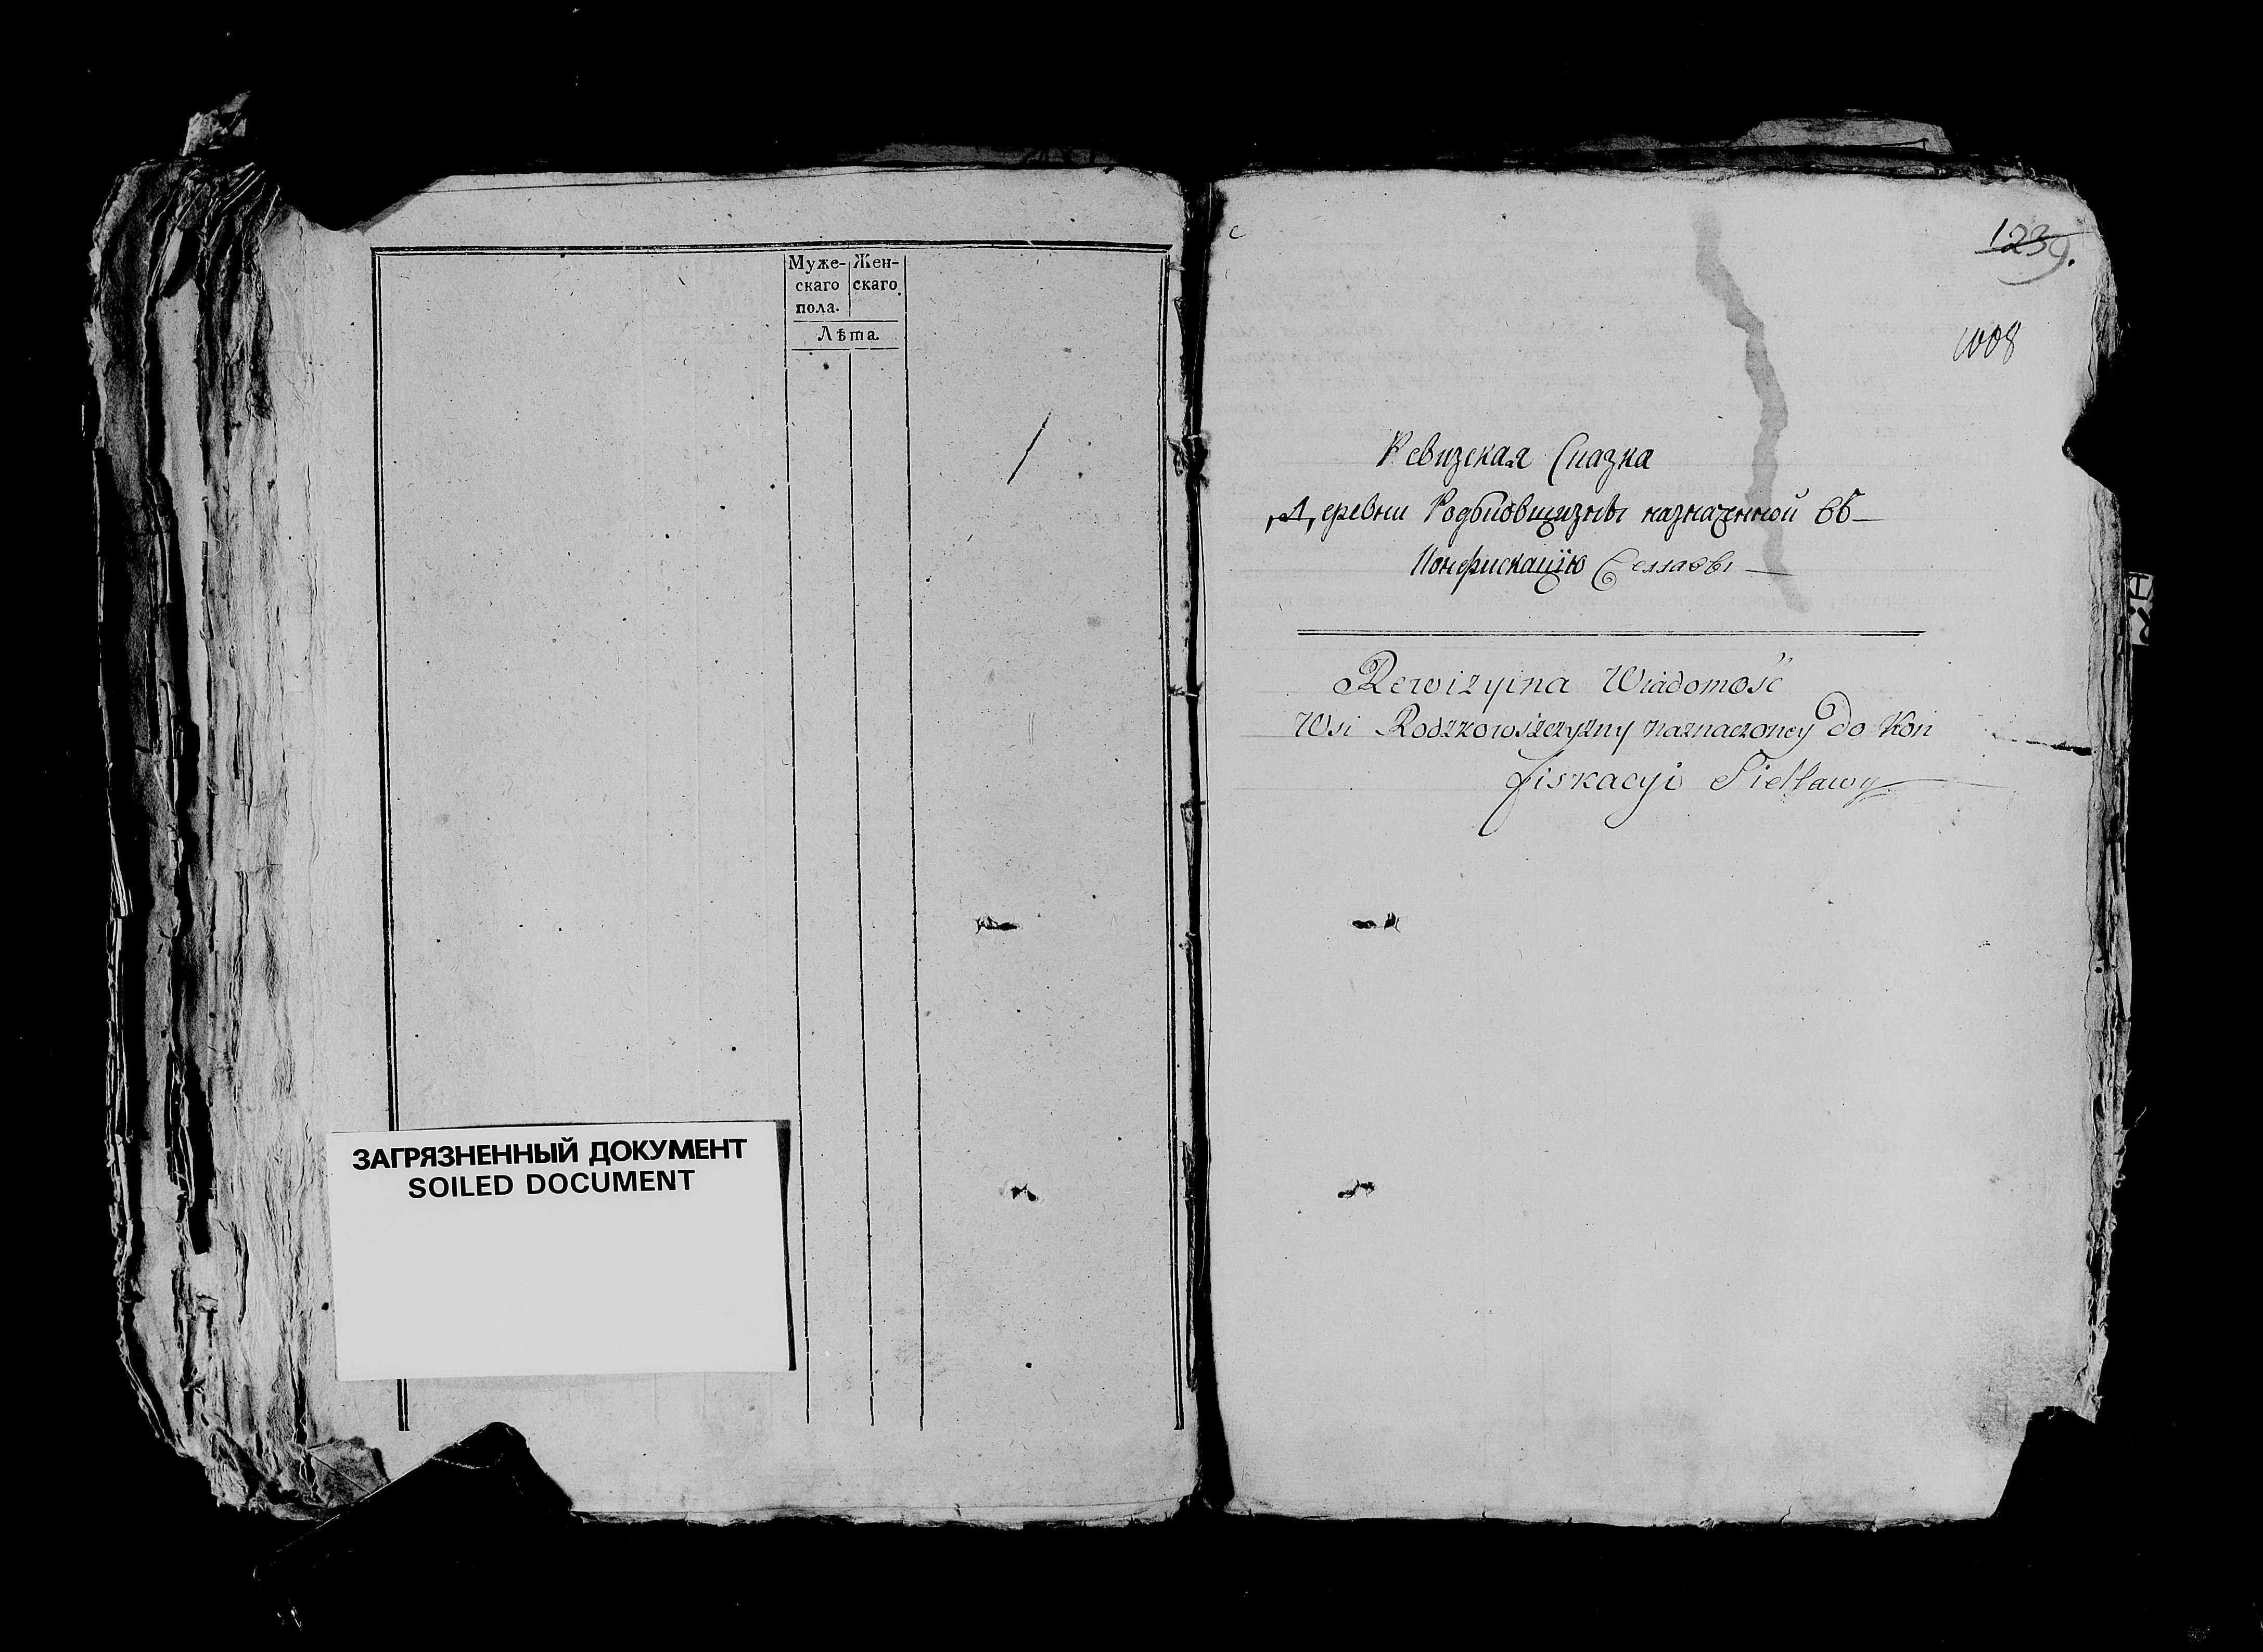 Муже-
скаго
пола.
Жен-
скаго.
Лѣта.
ЗАГРЯЗНЕННЫЙ ДОКУМЕНТ
SOILED DOCUMENT
1239.
1008
Ревизская Сказка
Деревни назначенной въ
Конфискацію
Rewizyina Wiadomość
Wsi Rodzkowszczyzny naznaczoney do Kon
fiskacyi Siellawy